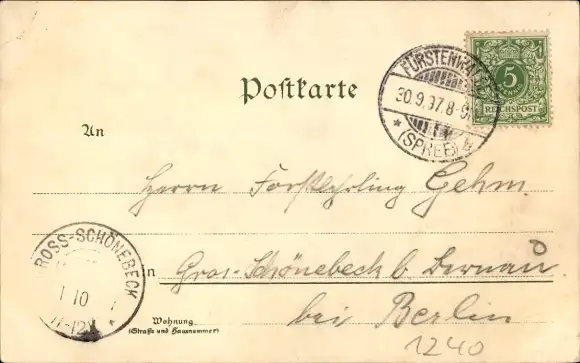 Postkarte
FÜRSTENWALDE
30.9.97.8-9
* (SPREE) 4
5
REICHSPOST
An
Herrn Forstlehrling Gehm.
ROSS-SCHÖNEBECK
1 10
11-12V *
in Gros-Schönebeck b. Bernau
bei Berlin
Wohnung
(Straße und Hausnummer)
1240